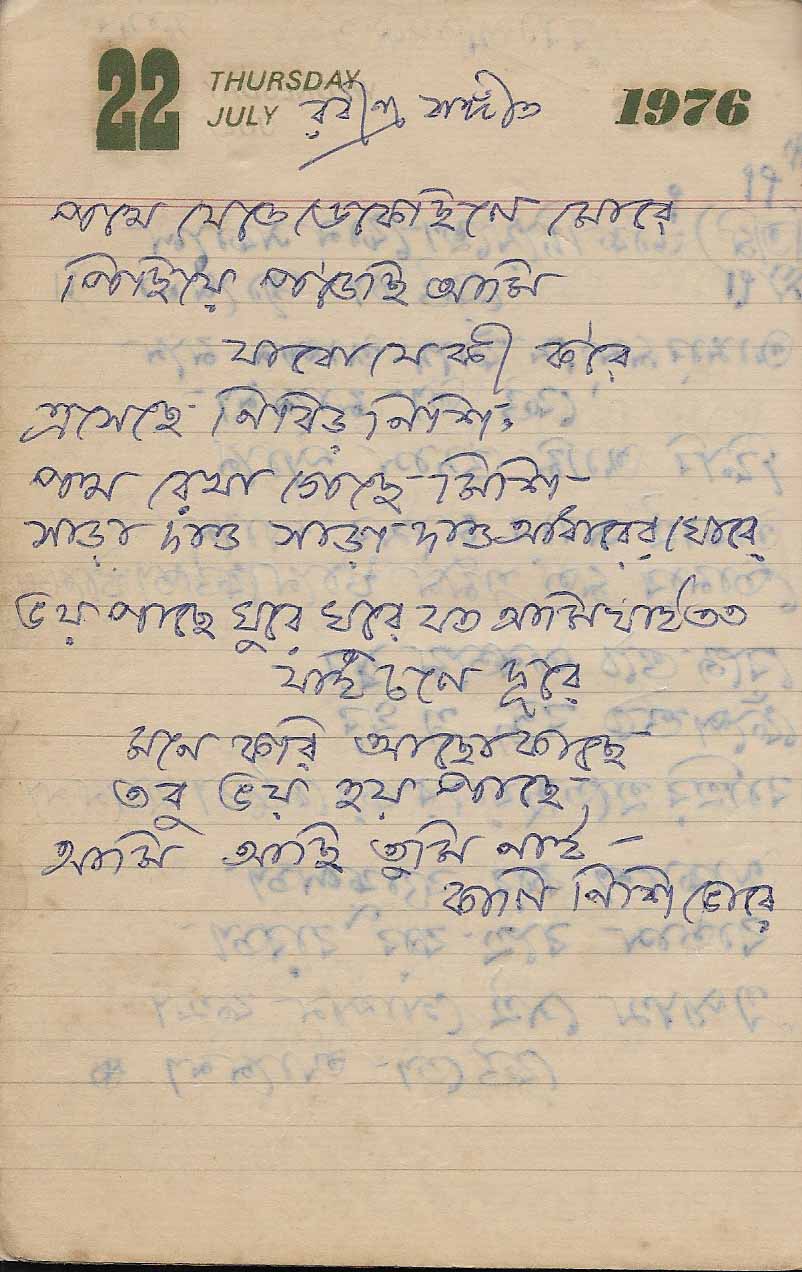 22 THURSDAY JULY 1976
রবীন্দ্র সঙ্গীত
পথে যেতে ডেকেছিলে মোরে
পিছিয়ে পড়েছি আমি
যাবো যে কী ক'রে
এসেছে নিবিড় নিশি,
পথ রেখা গেছে মিশি
সাড়া দাও সাড়া দাও আঁধারের ঘোরে
ভয় পাছে ঘুরে ঘুরে যত আমি যাই তত
যাই চলে দূরে
মনে করি আছো কাছে
তবু ভয় হয় পাছে,
আমি আছি তুমি নাই
কালি নিশি ভোরে